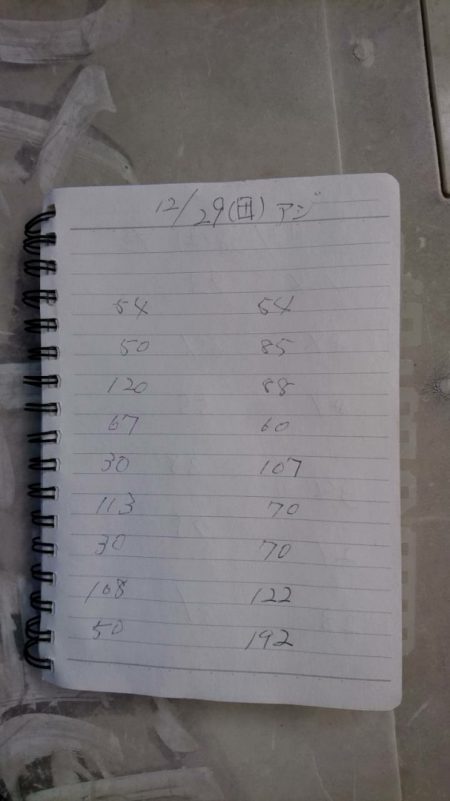 12/29(日) アジ
54 54
50 85
120 88
67 60
30 107
113 70
30 70
108 122
50 192